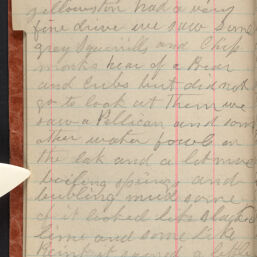 yellowston had a very
fine drive we saw some
gray Squirrills and Chip
monks hear of a Bear
and Cubs but did not
go to look at them we
saw a Pellican and som
other water fowls on
the lak and a lot more
boiling springs and
bubling mud some
of it looked like Slacked
lime and some like